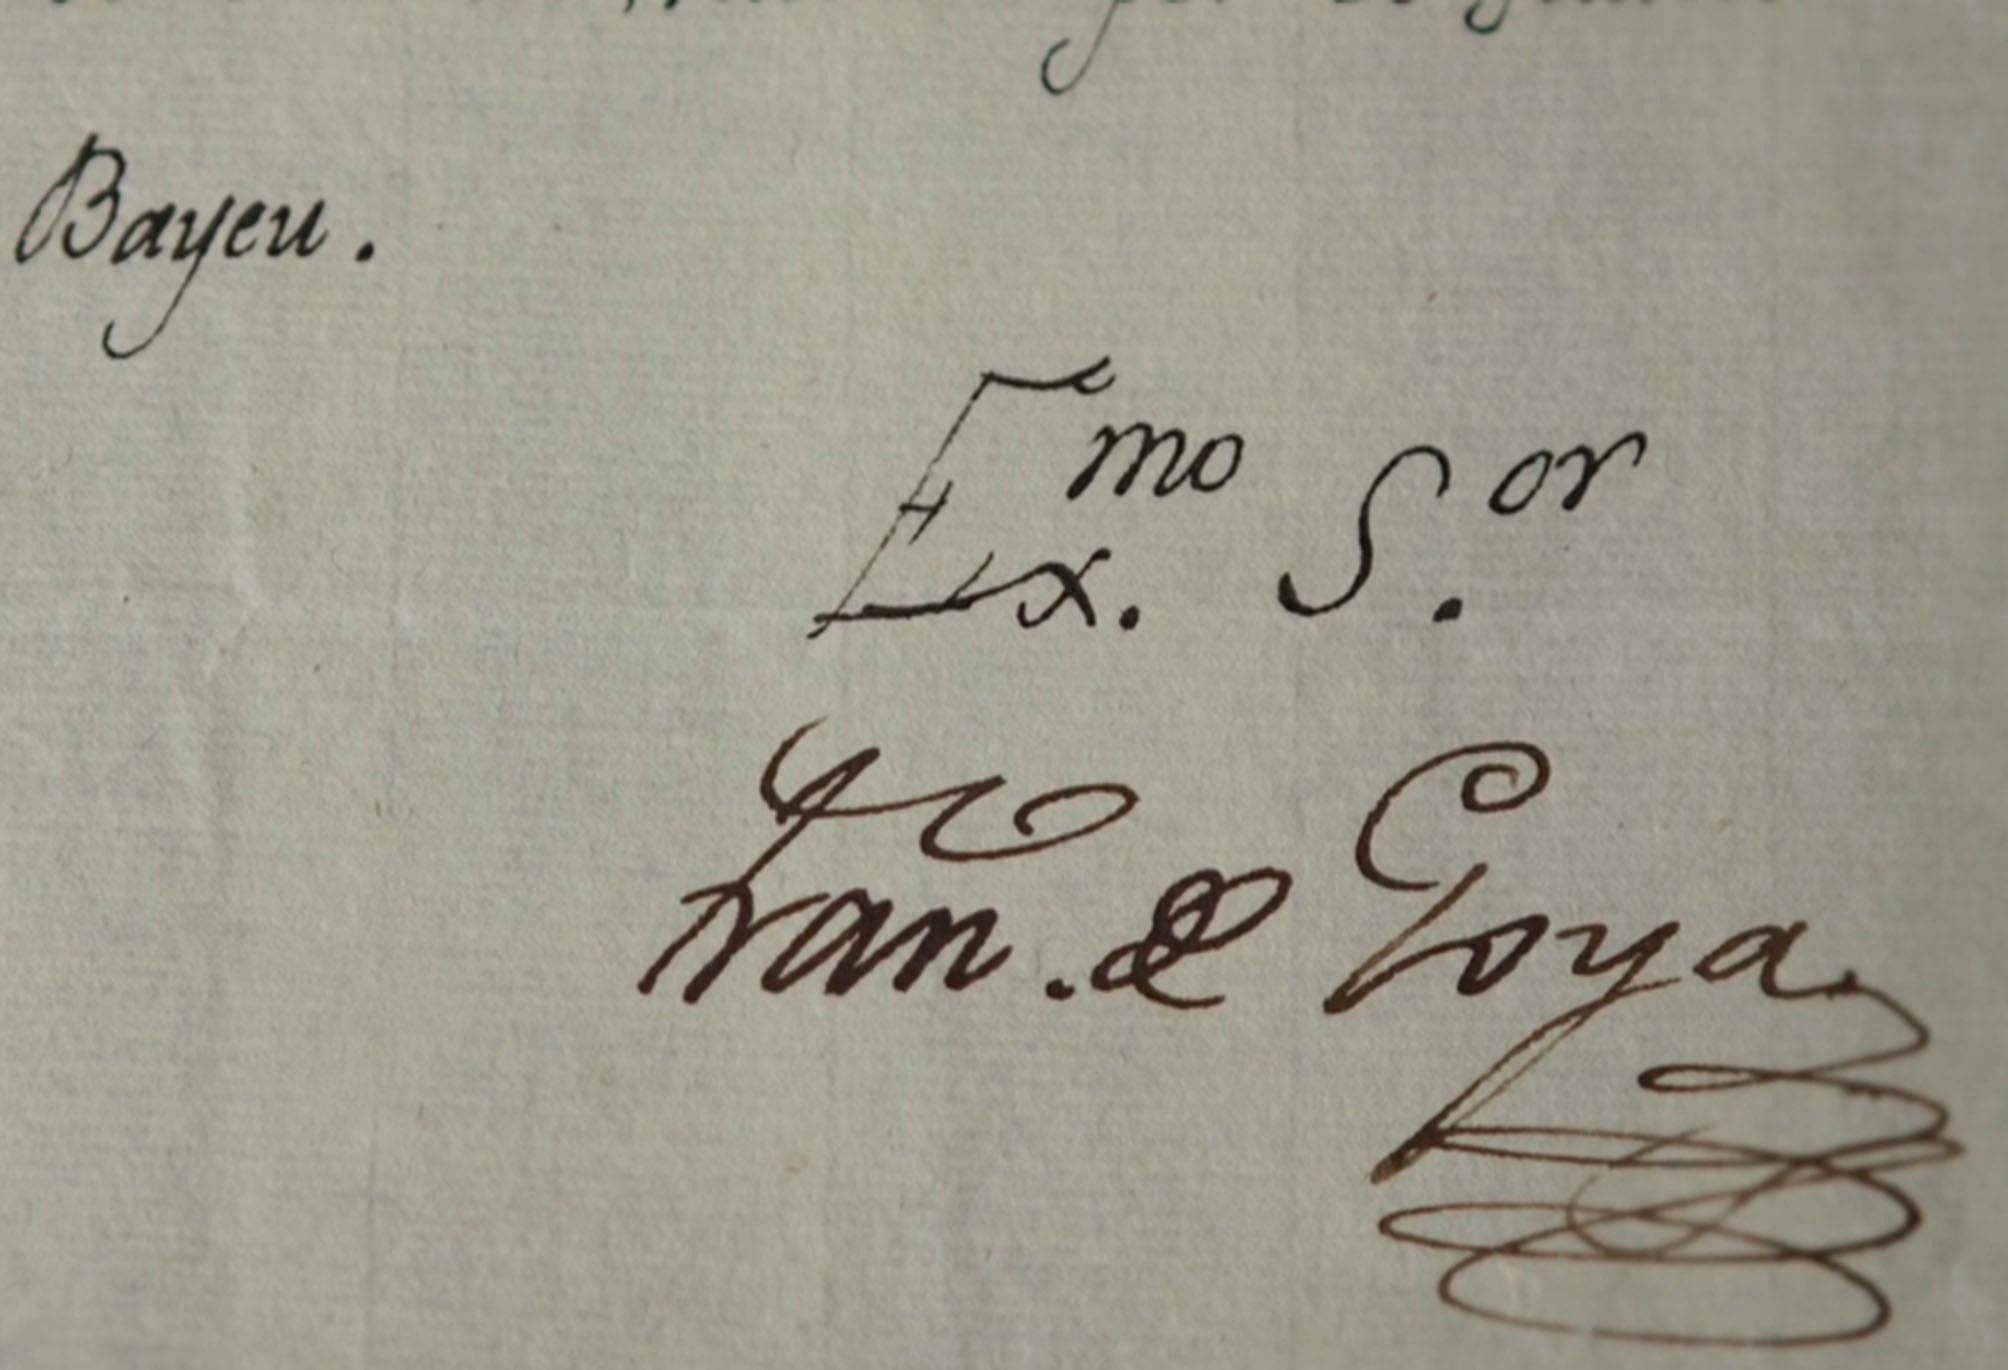 Bayeu.
Ex.mo S.or
Fran.co de Goya